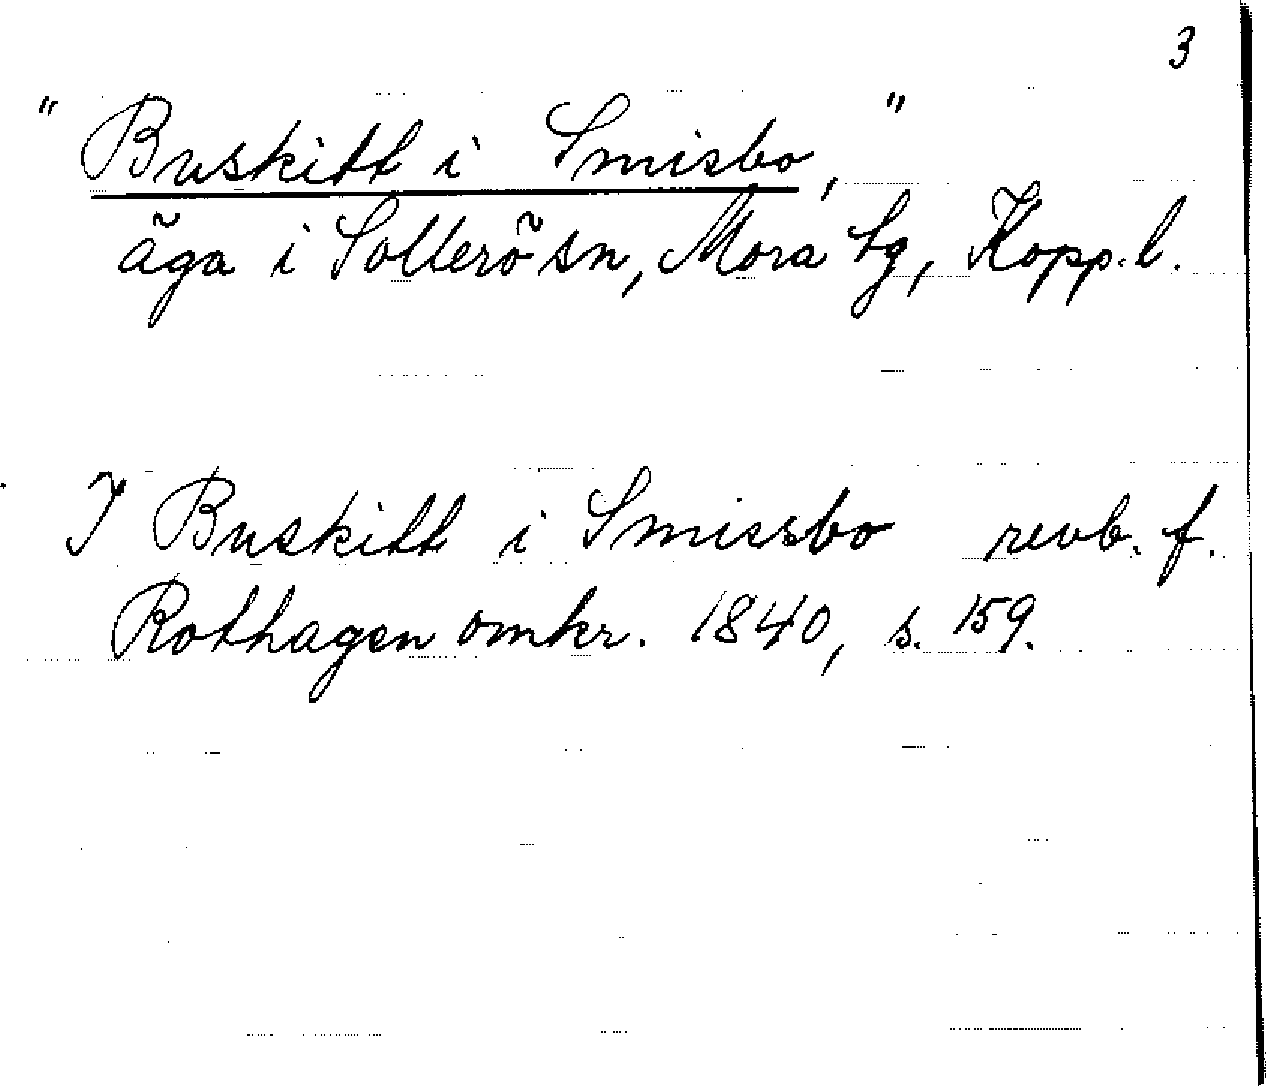 3
"Buskitt i Smisbo,"
äga i Sollerö sn, Mora tg, Kopp. l.
I Buskitt i Smissbo revb. f.
Rothagen omkr. 1840, s. 159.